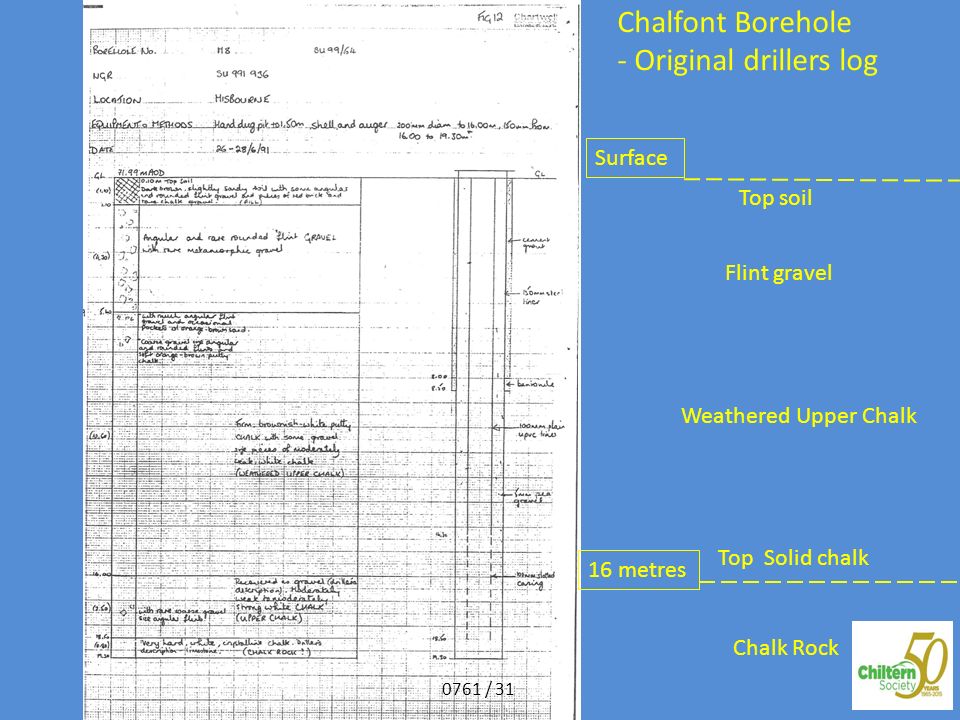 FIG 12 Chartwell
BOREHOLE No. M8 SU 99/64
NGR SU 991 936
LOCATION MISBOURNE
EQUIPMENT & METHODS Hand dug pit to 1.50m shell and auger 200mm diam to 16.00m, 150mm from
16.00 to 19.30m
DATE 26-28/6/91
GL 71.99 MAOD GL
0.10m TOP SOIL
(1.10) Dark brown, slightly sandy soil with some angular
and rounded flint gravel and pieces of red brick and
rare chalk gravel. (FILL)
Angular and rare rounded flint GRAVEL
with rare metamorphic gravel
cement
grout
150mm steel
liner
5.40 with much angular flint
gravel and occasional
pockets of orange-brown sand.
Coarse gravel size angular
and rounded flints and
soft orange-brown putty
chalk.
8.00
8.50 bentonite
Firm brownish-white putty
CHALK with some gravel
size pieces of moderately
weak, white chalk
(WEATHERED UPPER CHALK)
(10.60)
100mm plain
upvc liner
gravel
16.00
Recovered as gravel (drillers
description). Moderately
weak to moderately
strong white CHALK
(UPPER CHALK)
with rare coarse gravel
size angular flint
100mm slotted
casing
18.50 18.50
Very hard, white, crystalline chalk. Driller's
description - limestone. (CHALK ROCK?)
19.30 19.30
0761 / 31
Chalfont Borehole
- Original drillers log
Surface
Top soil
Flint gravel
Weathered Upper Chalk
Top Solid chalk
16 metres
Chalk Rock
Chiltern
Society
50
YEARS
1965-2015